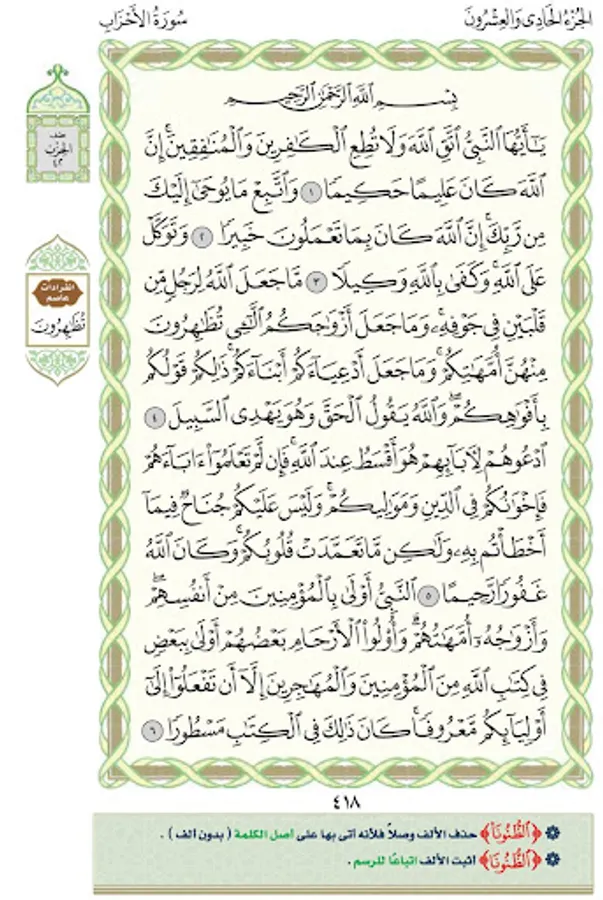 الجُزْءُ الحَادِي وَالعِشْرُونَ
سُورَةُ الأَحْزَابِ
بِسْمِ ٱللَّهِ ٱلرَّحْمَٰنِ ٱلرَّحِيمِ
يَٰٓأَيُّهَا ٱلنَّبِيُّ ٱتَّقِ ٱللَّهَ وَلَا تُطِعِ ٱلْكَٰفِرِينَ وَٱلْمُنَٰفِقِينَۚ إِنَّ
ٱللَّهَ كَانَ عَلِيمًا حَكِيمًا ١ وَٱتَّبِعْ مَا يُوحَىٰٓ إِلَيْكَ
مِن رَّبِّكَۚ إِنَّ ٱللَّهَ كَانَ بِمَا تَعْمَلُونَ خَبِيرًا ٢ وَتَوَكَّلْ
عَلَى ٱللَّهِۚ وَكَفَىٰ بِٱللَّهِ وَكِيلًا ٣ مَّا جَعَلَ ٱللَّهُ لِرَجُلٍ مِّن
قَلْبَيْنِ فِي جَوْفِهِۦۚ وَمَا جَعَلَ أَزْوَٰجَكُمُ ٱلَّٰٓـِٔي تُظَٰهِرُونَ
مِنْهُنَّ أُمَّهَٰتِكُمْۚ وَمَا جَعَلَ أَدْعِيَآءَكُمْ أَبْنَآءَكُمْۚ ذَٰلِكُمْ قَوْلُكُم
بِأَفْوَٰهِكُمْۖ وَٱللَّهُ يَقُولُ ٱلْحَقَّ وَهُوَ يَهْدِي ٱلسَّبِيلَ ٤
ٱدْعُوهُمْ لِأٓبَآئِهِمْ هُوَ أَقْسَطُ عِندَ ٱللَّهِۚ فَإِن لَّمْ تَعْلَمُوٓا۟ ءَابَآءَهُمْ
فَإِخْوَٰنُكُمْ فِي ٱلدِّينِ وَمَوَٰلِيكُمْۚ وَلَيْسَ عَلَيْكُمْ جُنَاحٌ فِيمَآ
أَخْطَأْتُم بِهِۦ وَلَٰكِن مَّا تَعَمَّدَتْ قُلُوبُكُمْۚ وَكَانَ ٱللَّهُ
غَفُورًا رَّحِيمًا ٥ ٱلنَّبِيُّ أَوْلَىٰ بِٱلْمُؤْمِنِينَ مِنْ أَنفُسِهِمْۖ
وَأَزْوَٰجُهُۥٓ أُمَّهَٰتُهُمْۗ وَأُو۟لُوا۟ ٱلْأَرْحَامِ بَعْضُهُمْ أَوْلَىٰ بِبَعْضٍ
فِي كِتَٰبِ ٱللَّهِ مِنَ ٱلْمُؤْمِنِينَ وَٱلْمُهَٰجِرِينَ إِلَّآ أَن تَفْعَلُوٓا۟ إِلَىٰٓ
أَوْلِيَآئِكُم مَّعْرُوفًاۚ كَانَ ذَٰلِكَ فِي ٱلْكِتَٰبِ مَسْطُورًا ٦
نصف
الحزب
٤٢
انفرادات
عاصم
تُظَٰهِرُونَ
٤١٨
﴿ٱلظُّنُونَا۠﴾ حذف الألف وصلاً فلأنه أتى بها على أصل الكلمة ( بدون ألف ) .
﴿ٱلظُّنُونَا۠﴾ أثبت الألف اتباعًا للرسم .